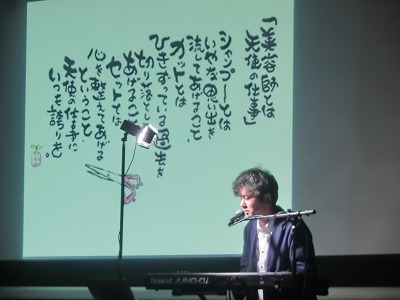 「美容師とは
天使の仕事」
シャンプーとは
いやな思い出を
流してあげること
カットとは
ひきずっている過去を
切り落として
あげること
セットとは
心を整えてあげる
ということ
天使の仕事に
いつも誇りを。
Roland JUNO-Di